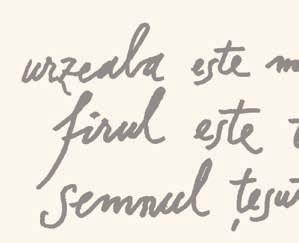 urzeala este
firul este
semnul